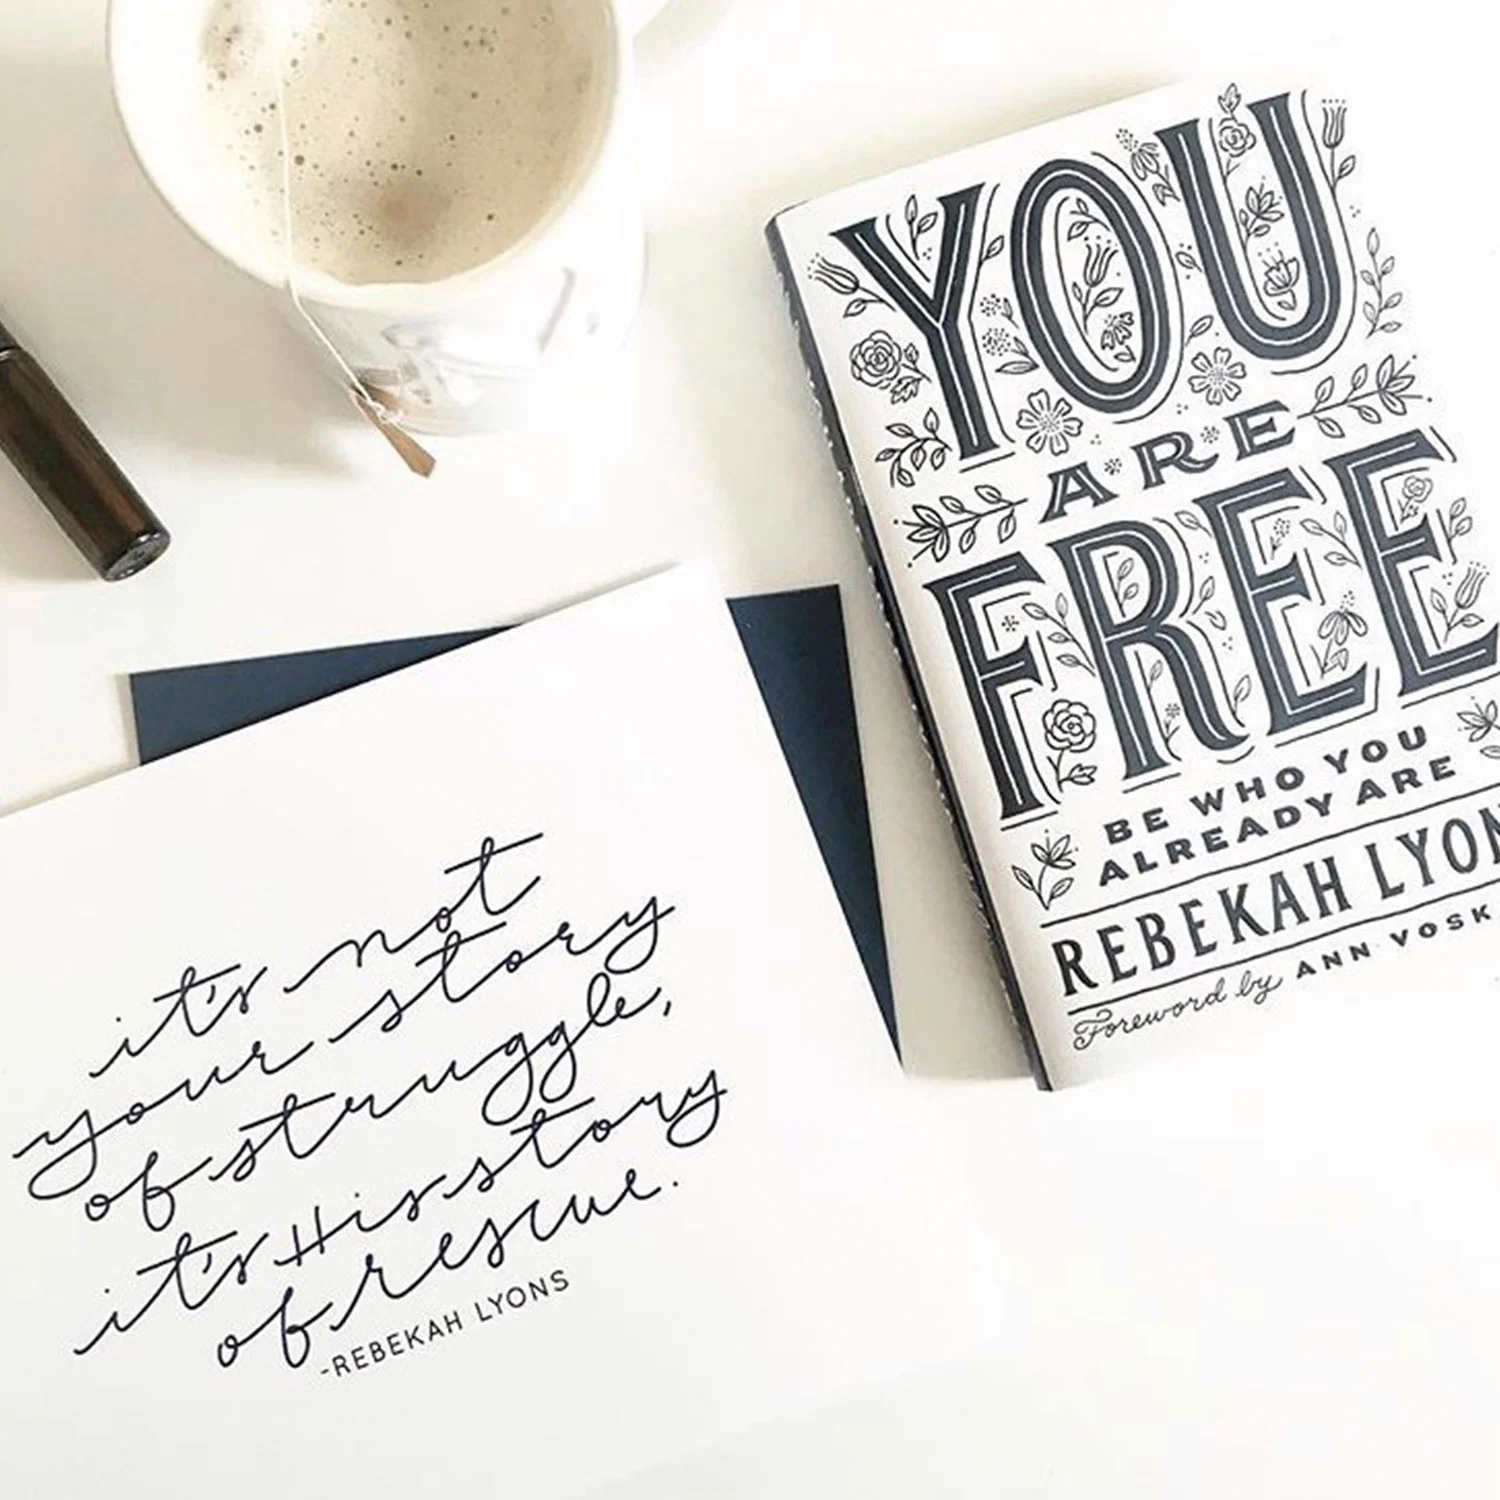 YOU
ARE
FREE
BE WHO YOU
ALREADY ARE
REBEKAH LYON
Foreword by ANN VOSK
it's not
your story
of struggle,
it's His story
of rescue.
-REBEKAH LYONS